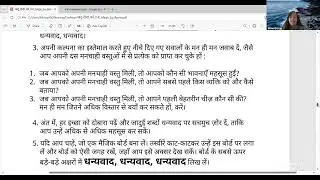 धन्यवाद, धन्यवाद।
3. अपनी कल्पना का इस्तेमाल करते हुए नीचे दिए गए सवालों के मन ही मन जवाब दें, जैसे
आप अपनी दस मनचाही वस्तुओं में से प्रत्येक को प्राप्त कर चुके हों :
1. जब आपको अपनी मनचाही वस्तु मिली, तो आपको कौन सी भावनाएँ महसूस हुईं?
2. जब आपको अपनी मनचाही वस्तु मिली, तो आपने सबसे पहले किस व्यक्ति को और कैसे
बताया?
3. जब आपको अपनी मनचाही वस्तु मिली, तो आपने पहली बेहतरीन चीज़ कौन सी की?
मन ही मन जितने अधिक विस्तार से बयाँ कर सकते हों, करें।
4. अंत में, हर इच्छा को दोबारा पढ़ें और जादुई शब्दों धन्यवाद पर सचमुच ज़ोर दें, ताकि
आप उन्हें अधिक से अधिक महसूस कर सकें।
5. यदि आप चाहें, तो एक मैजिक बोर्ड बना लें। तस्वीरें काट-काटकर उन्हें इस बोर्ड पर लगा
लें और बोर्ड को ऐसी जगह रखें, जहाँ आप इसे अक्सर देख सकें। बोर्ड के सबसे ऊपर
बड़े-बड़े अक्षरों में धन्यवाद, धन्यवाद, धन्यवाद लिख लें।